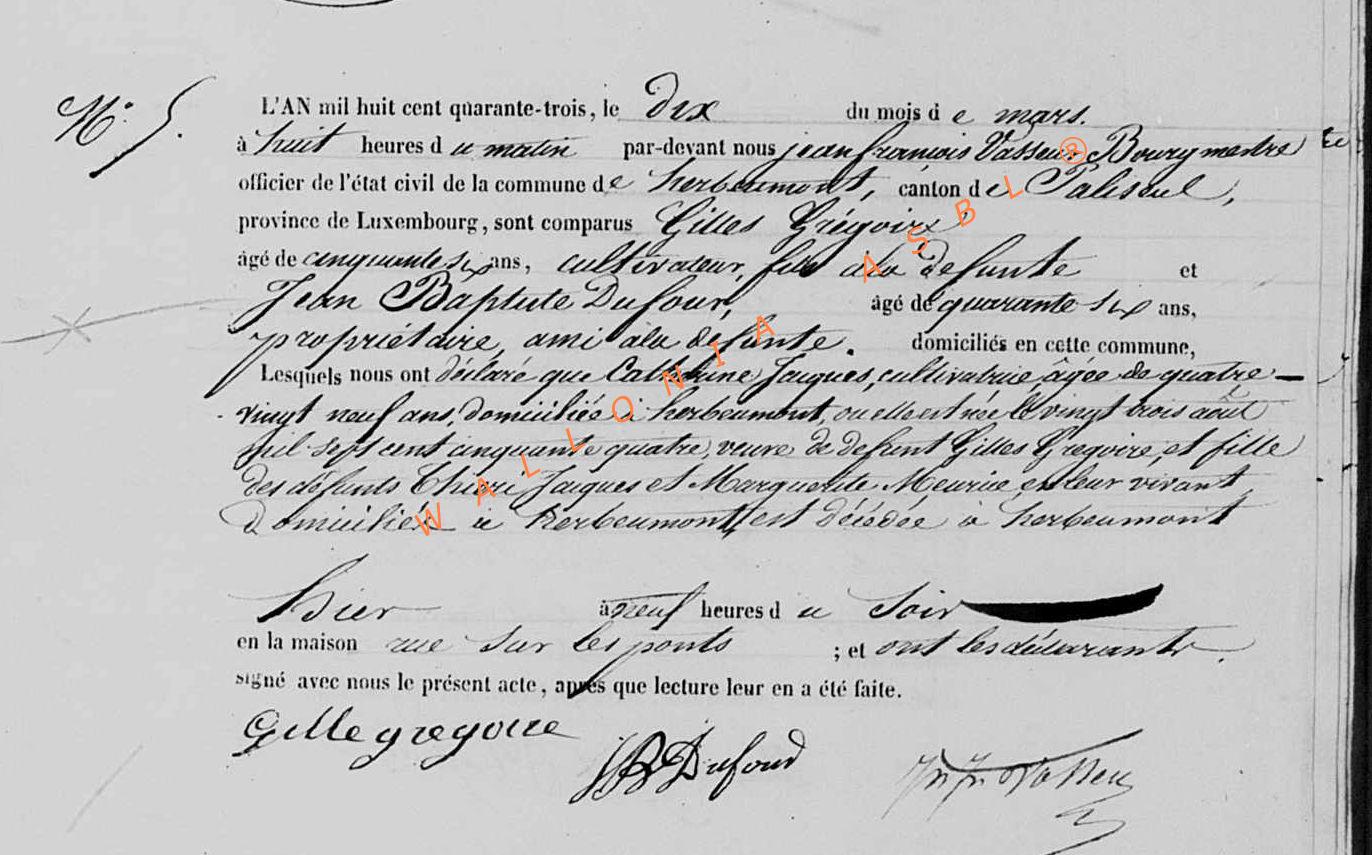 N.° 5.
L'AN mil huit cent quarante-trois, le dix du mois d e mars.
à huit heures d u matin par-devant nous jean francois Vasseur Bourgmestre
officier de l'état civil de la commune de herbeumont, canton de Paliseul,
province de Luxembourg, sont comparus Gilles Grégoire
âgé de cinquante six ans, cultivateur, fils à la defunte et
Jean Baptiste Dufour, âgé de quarante six ans,
propriétaire, ami à la defunte. domiciliés en cette commune,
Lesquels nous ont déclaré que Catherine Jaques, cultivatrice, âgée de quatre
vingt neuf ans, domiciliée à herbeumont, ou elle est née le vingt trois août
mil sept cent cinquante quatre, veuve de defunt Gilles Gregoire, et fille
des défunts Thieri Jaques et Marguerite Meurice, en leur vivant
domiciliés à herbeumont, est décédée à herbeumont
hier à neuf heures d u soir
en la maison rue sur les ponts ; et ont les déclarants
signé avec nous le présent acte, après que lecture leur en a été faite.
Gille gregoire
JB Dufour
WALLONIA ASBL ®